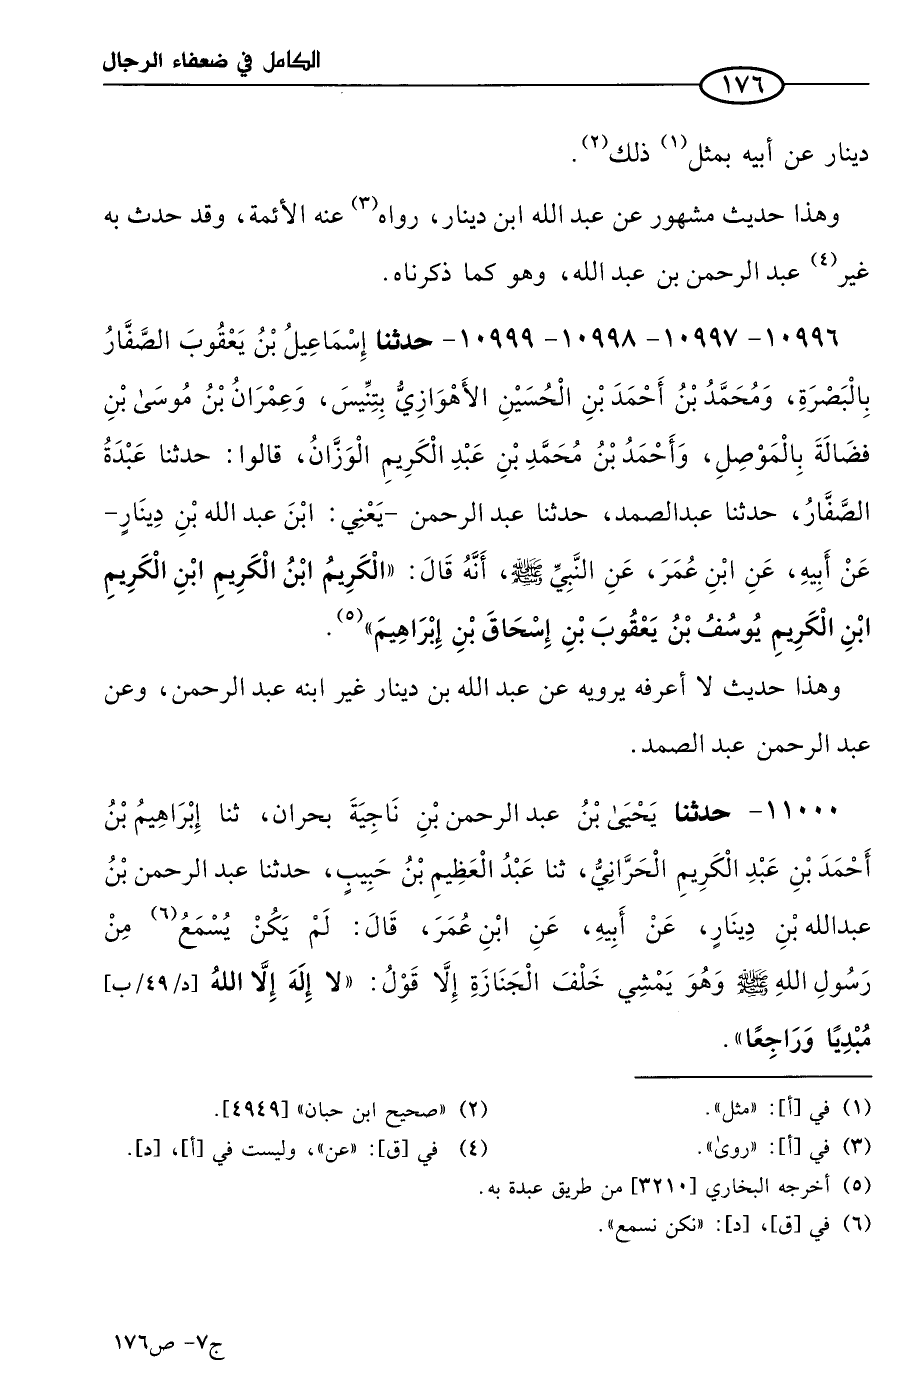 الكامل في ضعفاء الرجال
١٧٦
دينار عن أبيه بمثل(١) ذلك(٢).
وهذا حديث مشهور عن عبد الله ابن دينار، رواه(٣) عنه الأئمة، وقد حدث به
غير(٤) عبد الرحمن بن عبد الله، وهو كما ذكرناه.
١٠٩٩٦- ١٠٩٩٧- ١٠٩٩٨- ١٠٩٩٩- حدثنا إِسْمَاعِيلُ بْنُ يَعْقُوبَ الصَّفَّارُ
بِالْبَصْرَةِ، وَمُحَمَّدُ بْنُ أَحْمَدَ بْنِ الْحُسَيْنِ الأَهْوَازِيُّ بِتِنِّيسَ، وَعِمْرَانُ بْنُ مُوسَىٰ بْنِ
فضَالَةَ بِالْمَوْصِلِ، وَأَحْمَدُ بْنُ مُحَمَّدِ بْنِ عَبْدِ الْكَرِيمِ الْوَزَّانُ، قالوا: حدثنا عَبْدَةُ
الصَّفَّارُ، حدثنا عبدالصمد، حدثنا عبد الرحمن -يَعْنِي: ابْنَ عبد الله بْنِ دِينَارٍ-
عَنْ أَبِيهِ، عَنِ ابْنِ عُمَرَ، عَنِ النَّبِيِّ ﷺ، أَنَّهُ قَالَ: «الْكَرِيمُ ابْنُ الْكَرِيمِ ابْنِ الْكَرِيمِ
ابْنِ الْكَرِيمِ يُوسُفُ بْنُ يَعْقُوبَ بْنِ إِسْحَاقَ بْنِ إِبْرَاهِيمَ»(٥).
وهذا حديث لا أعرفه يرويه عن عبد الله بن دينار غير ابنه عبد الرحمن، وعن
عبد الرحمن عبد الصمد.
١١٠٠٠- حدثنا يَحْيَىٰ بْنُ عبد الرحمن بْنِ نَاجِيَةَ بحران، ثنا إِبْرَاهِيمُ بْنُ
أَحْمَدَ بْنِ عَبْدِ الْكَرِيمِ الْحَرَّانِيُّ، ثنا عَبْدُ الْعَظِيمِ بْنُ حَبِيبٍ، حدثنا عبد الرحمن بْنُ
عبدالله بْنِ دِينَارٍ، عَنْ أَبِيهِ، عَنِ ابْنِ عُمَرَ، قَالَ: لَمْ يَكُنْ يُسْمَعُ(٦) مِنْ
رَسُولِ اللهِ ﷺ وَهُوَ يَمْشِي خَلْفَ الْجَنَازَةِ إِلَّا قَوْلُ: «لا إِلَهَ إِلَّا اللهُ [د/٤٩/ب]
مُبْدِيًا وَرَاجِعًا».
(١) في [أ]: «مثل».
(٢) «صحيح ابن حبان» [٤٩٤٩].
(٣) في [أ]: «روىٰ».
(٤) في [ق]: «عن»، وليست في [أ]، [د].
(٥) أخرجه البخاري [٣٢١٠] من طريق عبدة به.
(٦) في [ق]، [د]: «نكن نسمع».
ج٧- ص١٧٦